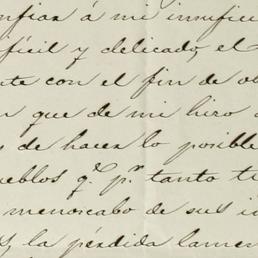 onfiar á mi insufice
ofícil y delicado, el
te con el fin de ob
n que de mi hizo
s de hacer lo posible
ueblos q.e p.r tanto ti
menoscabo de sus i
s, la pérdida lamen